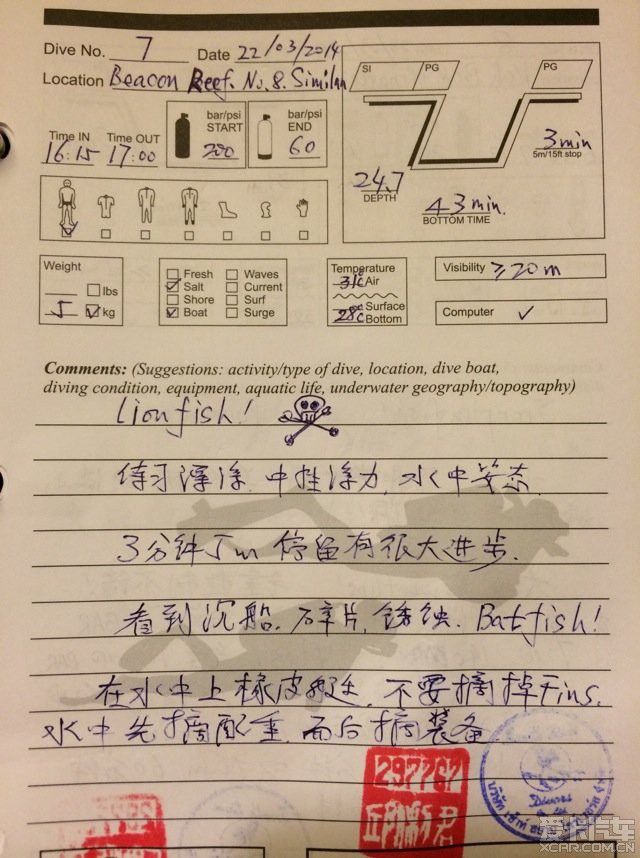 Dive No. 7 Date 22/03/2014
Location Beacon Reef. No.8. Similan
Time IN Time OUT
16:15 17:00
bar/psi START 200
bar/psi END 60
SI PG PG
24.7 DEPTH
43min. BOTTOM TIME
3min
5m/15ft stop
Weight
lbs
5 kg
Fresh Waves
Salt Current
Shore Surf
Boat Surge
Temperature
31c Air
28c Surface
Bottom
Visibility ≥20m
Computer ✓
Comments: (Suggestions: activity/type of dive, location, dive boat,
diving condition, equipment, aquatic life, underwater geography/topography)
Lionfish!
练习漂浮.中性浮力,水中姿态.
3分钟5m停留有很大进步.
看到沉船.碎片,锈蚀.Batfish!
在水中上橡皮艇,不要摘掉Fins.
水中先摘配重,而后摘装备.
297767
Divers
爱卡汽车
XCAR.COM.CN